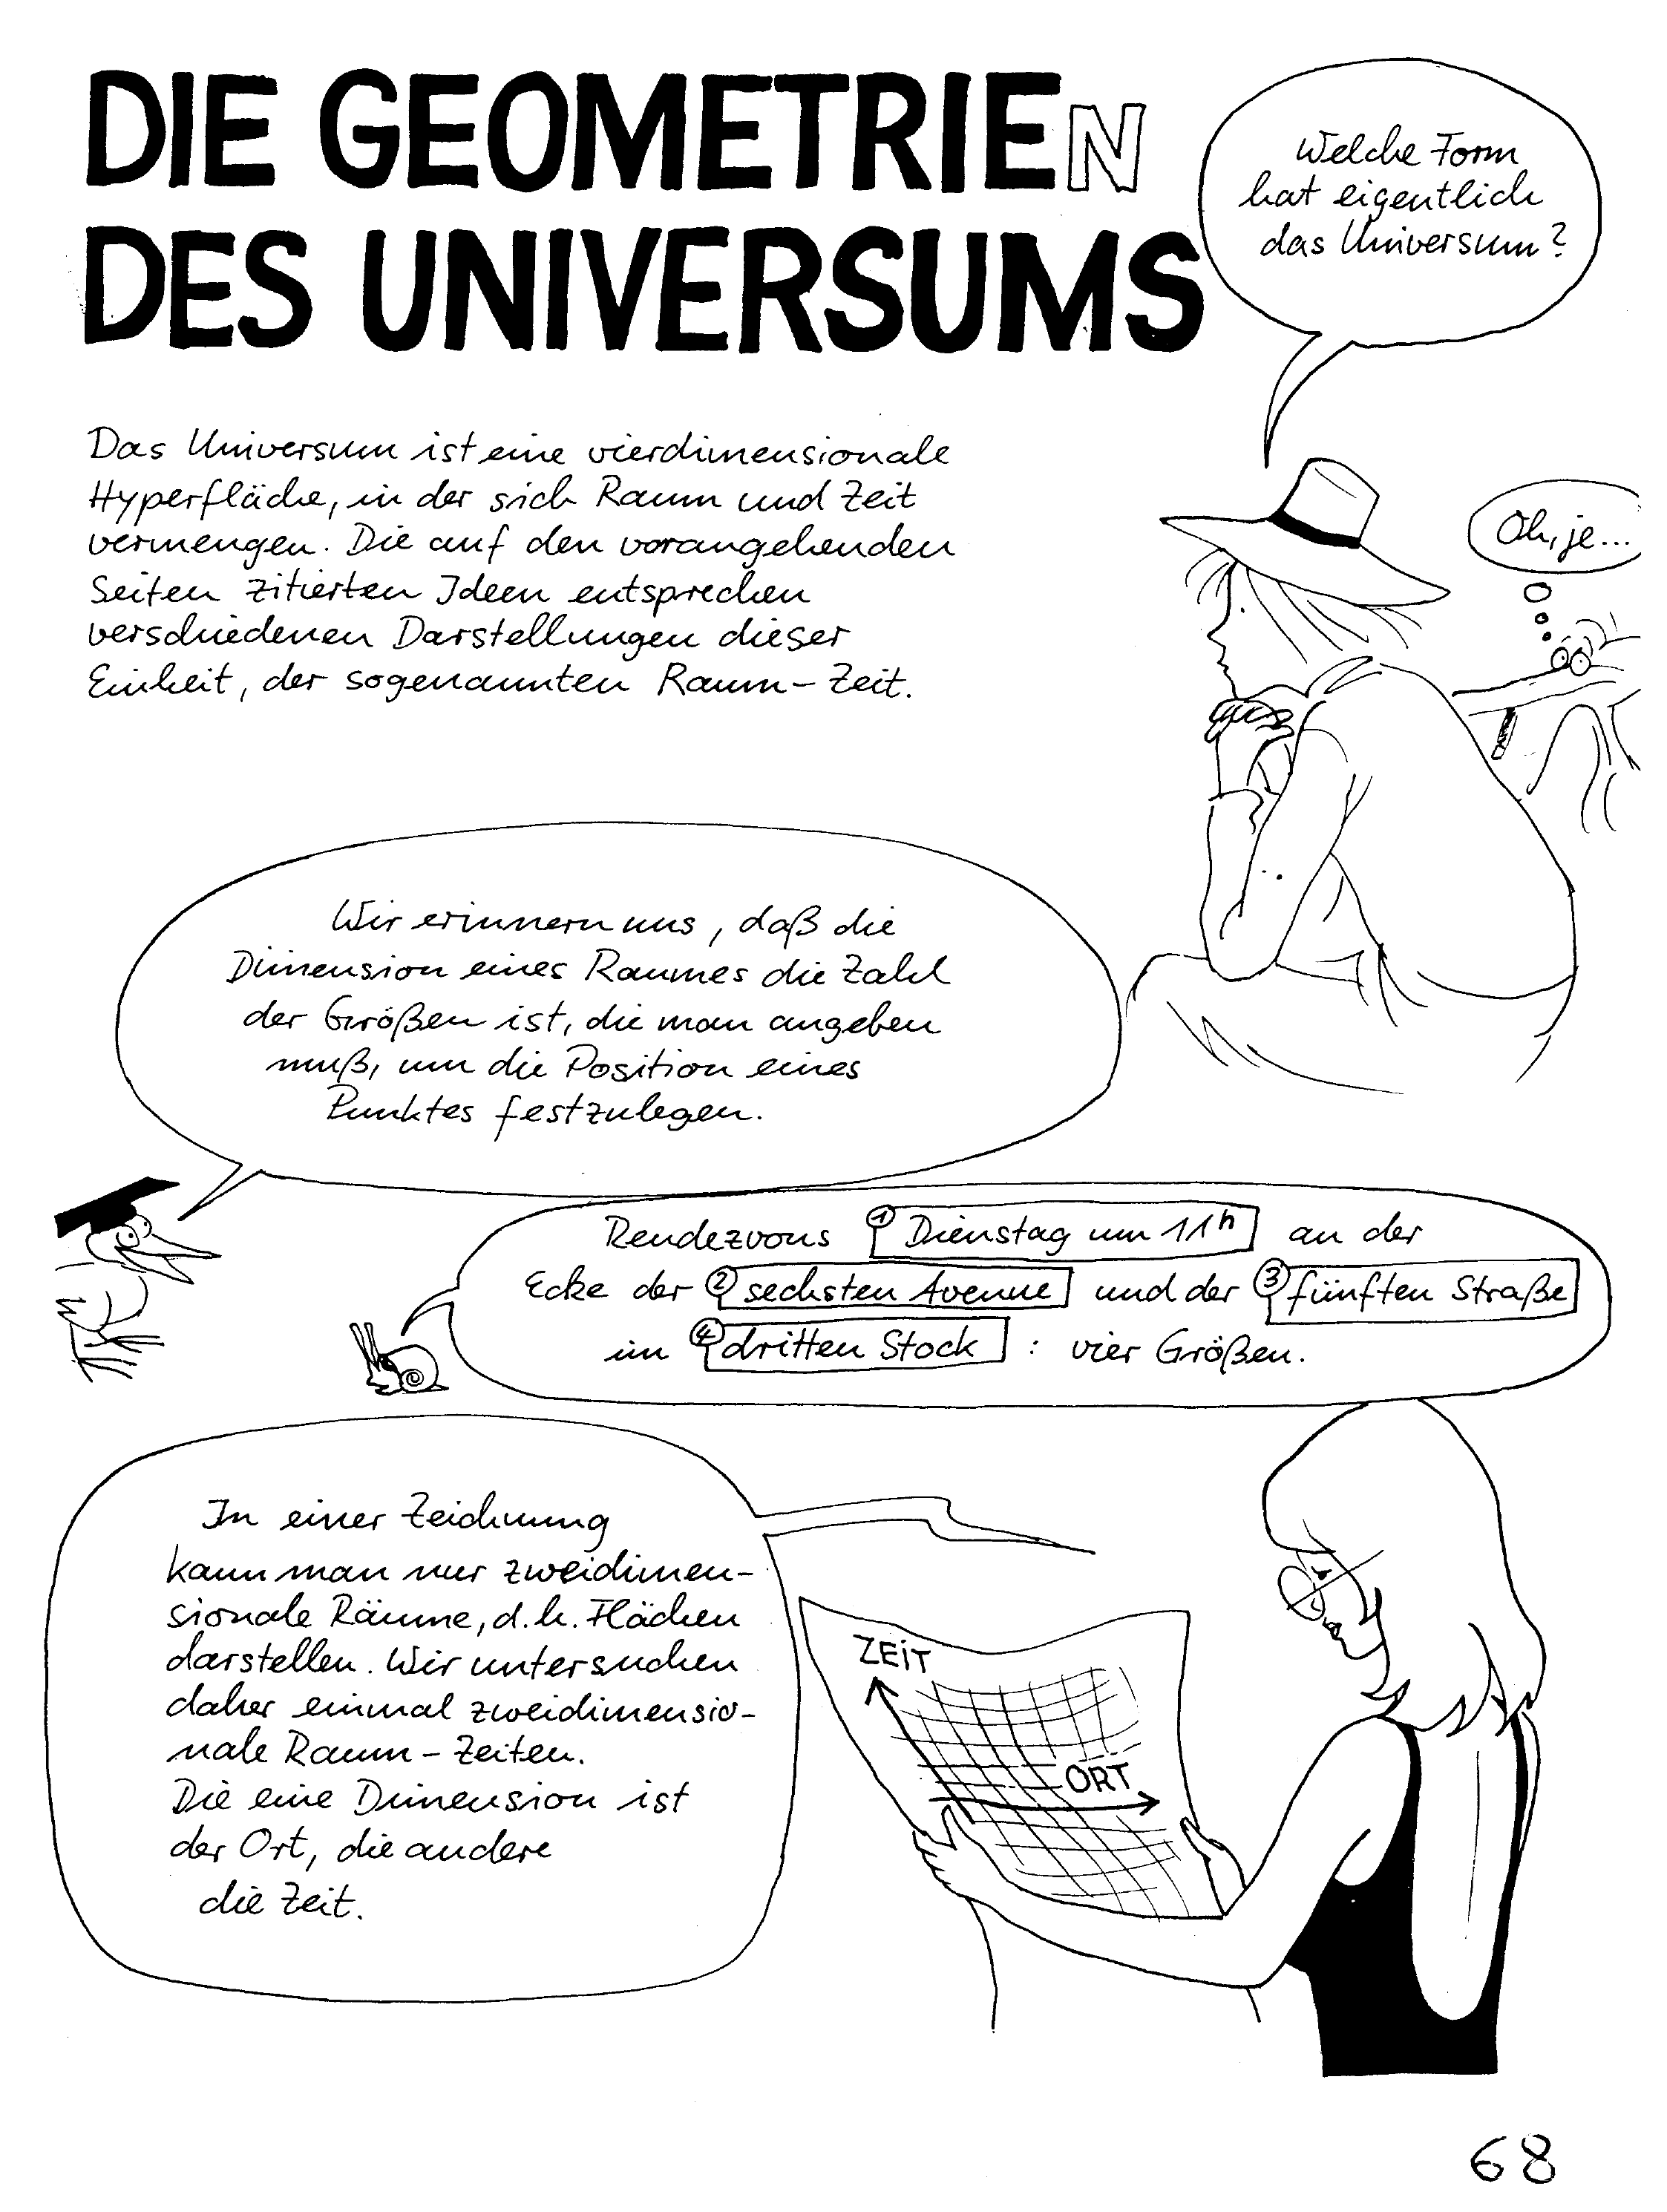 DIE GEOMETRIEN
DES UNIVERSUMS
Welche Form
hat eigentlich
das Universum?
Das Universum ist eine vierdimensionale
Hyperfläche, in der sich Raum und Zeit
vermengen. Die auf den vorangehenden
Seiten zitierten Ideen entsprechen
verschiedenen Darstellungen dieser
Einheit, der sogenannten Raum-Zeit.
Oh, je...
Wir erinnern uns, daß die
Dimension eines Raumes die Zahl
der Größen ist, die man angeben
muß, um die Position eines
Punktes festzulegen.
Rendezvous 1 Dienstag um 11h an der
Ecke der 2 sechsten Avenue und der 3 fünften Straße
im 4 dritten Stock : vier Größen.
In einer Zeichnung
kann man nur zweidimen-
sionale Räume, d.h. Flächen
darstellen. Wir untersuchen
daher einmal zweidimensio-
nale Raum-Zeiten.
Die eine Dimension ist
der Ort, die andere
die Zeit.
ZEIT
ORT
68